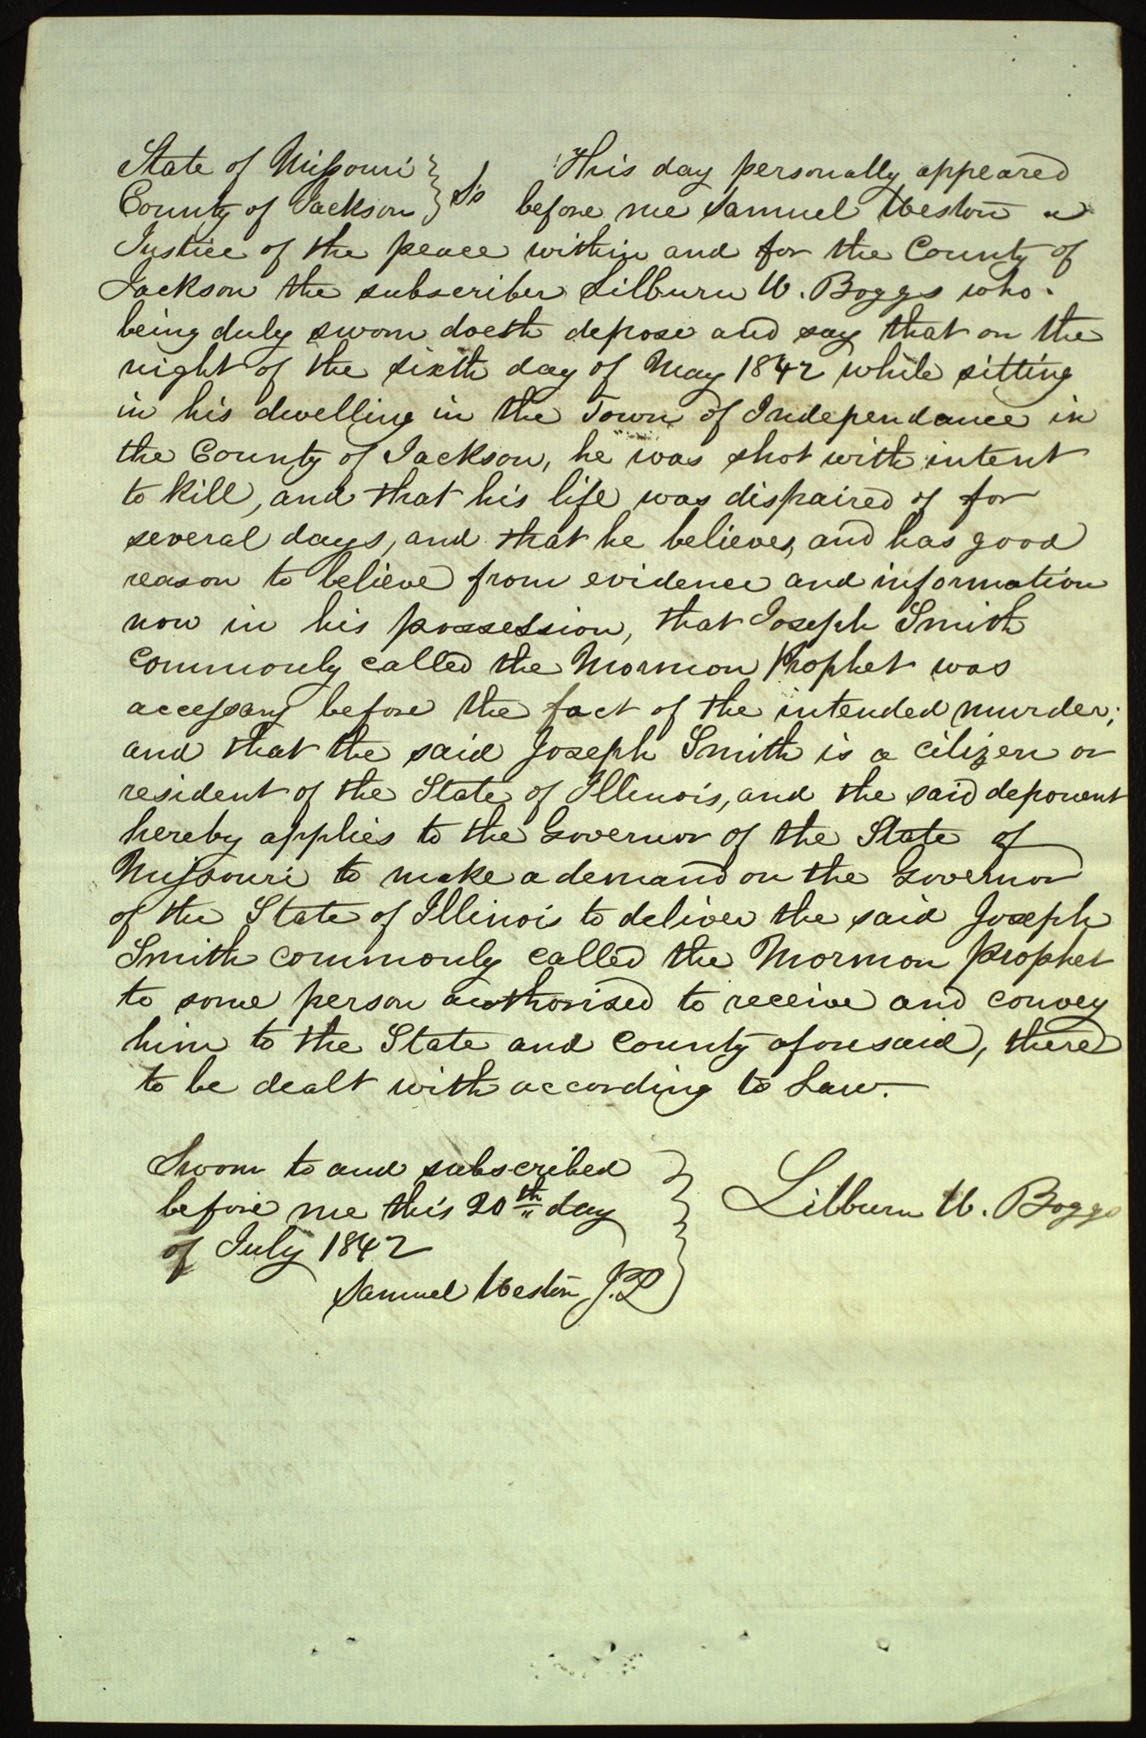 State of Missouri } Ss This day personally appeared
County of Jackson } before me Samuel Weston a
Justice of the peace within and for the County of
Jackson the subscriber Lilburn W. Boggs who
being duly sworn doeth depose and say that on the
night of the sixth day of May 1842 while sitting
in his dwelling in the Town of Independance in
the County of Jackson, he was shot with intent
to kill, and that his life was dispaired of for
several days, and that he believes, and has good
reason to believe from evidence and information
now in his possession, that Joseph Smith
commonly called the Mormon Prophet was
accessary before the fact of the intended murder;
and that the said Joseph Smith is a citizen or
resident of the State of Illinois, and the said deponent
hereby applies to the Governor of the State of
Missouri to make a demand on the Governor
of the State of Illinois to deliver the said Joseph
Smith commonly called the Mormon Prophet
to some person authorised to receive and convey
him to the State and County aforesaid, there
to be dealt with according to Law.
Sworn to and subscribed
before me this 20th day
of July 1842
Samuel Weston J.P.
Lilburn W. Boggs